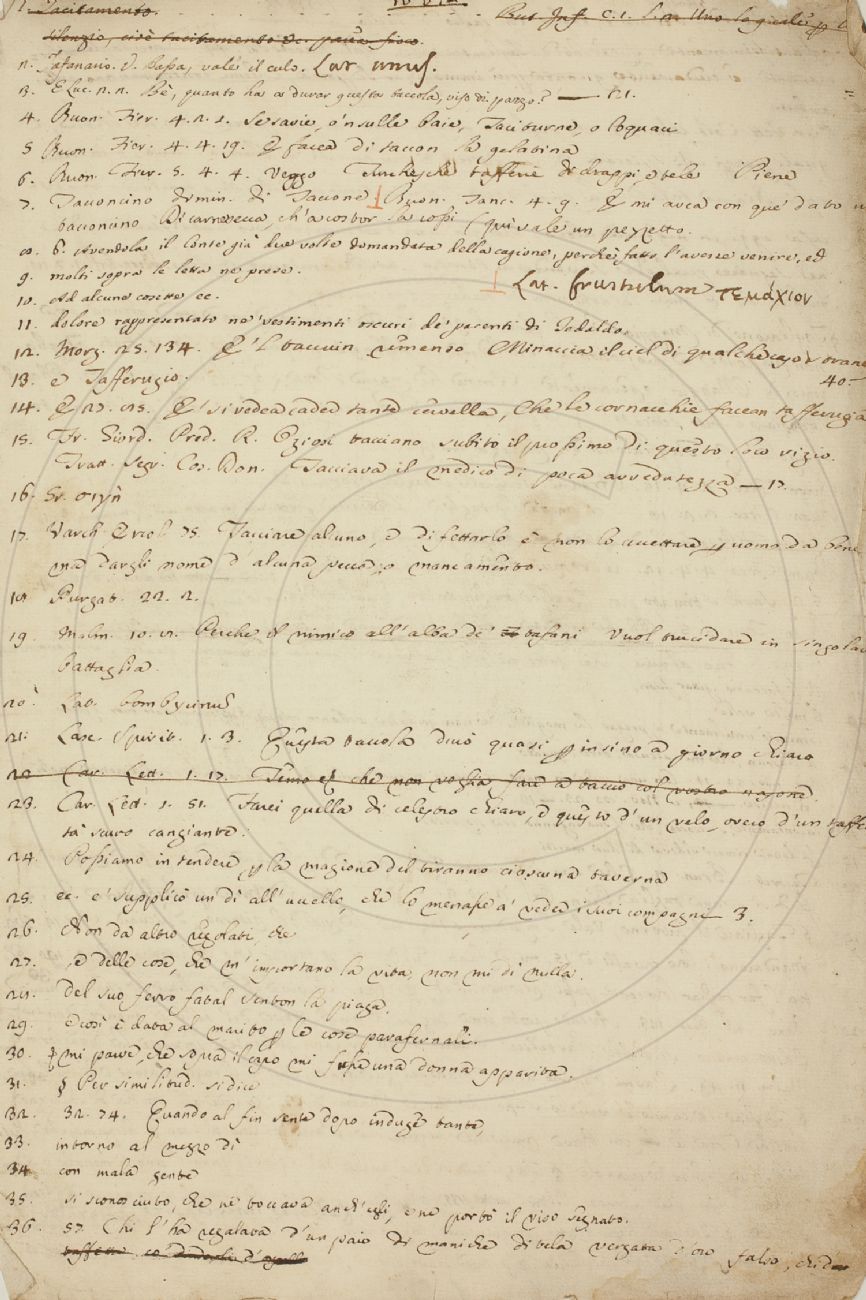 1. Tacitamento. But. Inf. c. 1. L. m Uno la quale p
silenzio, cioè tacitamento
2. Tafanario. S. Bassa, vale il culo. Lat. anus.
3. E Luc. n. n. Bè, quanto ha a durar questa taccola, viso di pazzo? — 21.
4. Buon. Fier. 4. 2. 1. Se savie, o 'nsulle baie, Taciturne, o loquaci
5 Buon. Fier. 4. 4. 19. E facea di taccon la gelatina
6. Buon. Fier. 5. 4. 4. Veggo Turchesche tafferie di drappi, e tele Piene
7. Tacconcino dimin. di Taccone Buon. Tanc. 4. 9. E mi avea con que' dato u
tacconcino Di carnesecca ch'a costor la rossi (qui vale un pezzetto.
8. 6. Avendola il Conte già due volte domandata della cagione, perchè fatto l'avesse venire, ed
9. molti sopra le letta ne prese. Lat. frustulum τεμάχιον
10. Ad alcune cosette ec.
11. dolore rappresentato ne' vestimenti oscuri de' parenti di Tedaldo.
12. Morg. 25. 134. E 'l taccuin Minaccia il ciel di qualche caso strano
13. e Tafferugio. 40.
14. E 27. E' si vedea cader tante cervella, Che le cornacchie facean tafferugia
15. Fr. Giord. Pred. R. Oziosi tacciano subito il prossimo di questo loro vizio.
Tratt. Segr. Cos. Don. Tacciava il medico di poca avvedutezza — 17.
16. Gr. σιγῇ
17. Varch Ercol 75. Tacciare alcuno, e difettarlo è non lo accettare p uomo da bene
ma dargli nome d'alcuna pecca, o mancamento.
18 Purgat. 22. 2.
19. Malm. 10. Perche il nimico all'alba de' tafani Vuol trucidare in singolar
battaglia.
20. Lat. bombycinus
21. Lasc. Spirit. 1. 3. Questa taccola durò quasi p insino a giorno chiaro
22 Car. Lett. 1. 17. Temo che non voglia fare a taccio col vostro
23. Car. Lett. 1. 51. Farei quella di celestro chiaro, e questo d'un velo, ovvero d'un taffe
tà scuro cangiante.
24. Possiamo intendere, p la magione del tiranno ciascuna taverna
25. ec. e' supplicò un dì all'uccello, che lo menasse a' vedere i suoi compagni — 3.
26. Non da altro regolati, che
27. e delle cose, che m'importano la vita, non mi di nulla.
28. Del suo ferro fatal senton la piaga.
29. e così è data al marito p le cose parafernali.
30. mi parve, che sopra il capo mi fusse una donna apparita.
31. § Per similitud. si dice
32. 32. 74. Quando al fin sente dopo indugi tante,
33. intorno al mezzo dì
34 con mala gente
35. si sconosciuto, che ne toccava anch'egli, e ne portò il viso segnato.
36. 57 Chi l'ha regalava d'un paio di maniche di tela vergata d'oro falso, chi d
taffetta